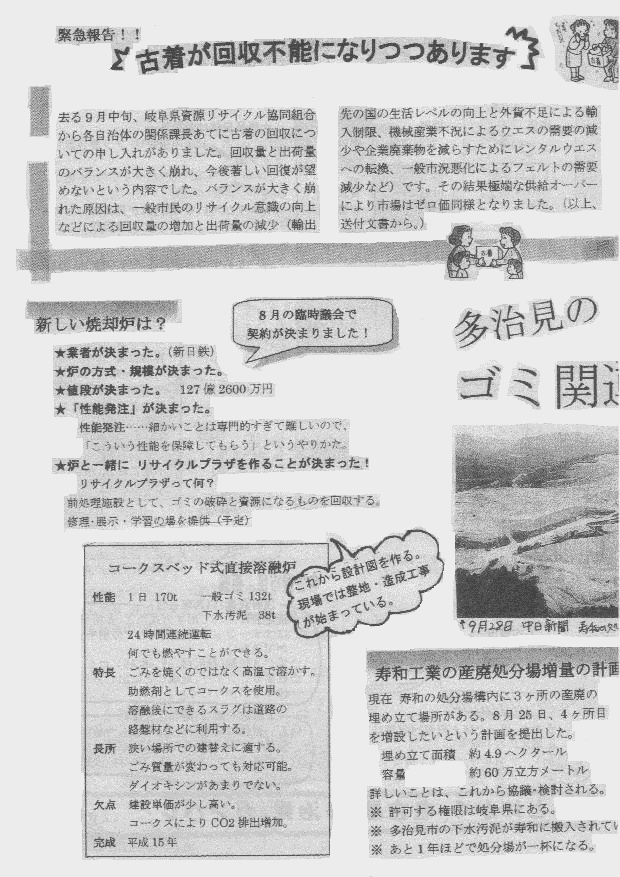 緊急報告！！
古着が回収不能になりつつあります
去る９月中旬、岐阜県資源リサイクル協同組合
から各自治体の関係課長あてに古着の回収につ
いての申し入れがありました。回収量と出荷量
のバランスが大きく崩れ、今後著しい回復が望
めないという内容でした。バランスが大きく崩
れた原因は、一般市民のリサイクル意識の向上
などによる回収量の増加と出荷量の減少（輸出
先の国の生活レベルの向上と外貨不足による輸
入制限、機械産業不況によるウエスの需要の減
少や企業廃棄物を減らすためにレンタルウエス
への転換、一般市況悪化によるフェルトの需要
減少など）です。その結果極端な供給オーバー
により市場はゼロ価同様となりました。（以上、
送付文書から。）
新しい焼却炉は？
８月の臨時議会で
契約が決まりました！
★業者が決まった。（新日鉄）
★炉の方式・規模が決まった。
★値段が決まった。 127億2600万円
★「性能発注」が決まった。
性能発注……細かいことは専門的すぎて難しいので、
「こういう性能を保障してもらう」というやりかた。
★炉と一緒に リサイクルプラザを作ることが決まった！
リサイクルプラザって何？
前処理施設として、ゴミの破砕と資源になるものを回収する。
修理・展示・学習の場を提供（予定）
コークスベッド式直接溶融炉
性能 １日 170t 一般ゴミ 132t
下水汚泥 38t
24時間連続運転
何でも燃やすことができる。
特長 ごみを焼くのではなく高温で溶かす。
助燃剤としてコークスを使用。
溶融後にできるスラグは道路の
路盤材などに利用する。
長所 狭い場所での建替えに適する。
ごみ質量が変わっても対応可能。
ダイオキシンがあまりでない。
欠点 建設単価が少し高い。
コークスによりCO2排出増加。
完成 平成15年
これから設計図を作る。
現場では整地・造成工事
が始まっている。
多治見の
ゴミ関連
↑9月28日 中日新聞 寿和の処
寿和工業の産廃処分場増量の計画
現在 寿和の処分場構内に３ヶ所の産廃の
埋め立て場所がある。８月25日、４ヶ所目
を増設したいという計画を提出した。
埋め立て面積 約4.9ヘクタール
容量 約60万立方メートル
詳しいことは、これから協議・検討される。
※ 許可する権限は岐阜県にある。
※ 多治見市の下水汚泥が寿和に搬入されてい
※ あと１年ほどで処分場が一杯になる。